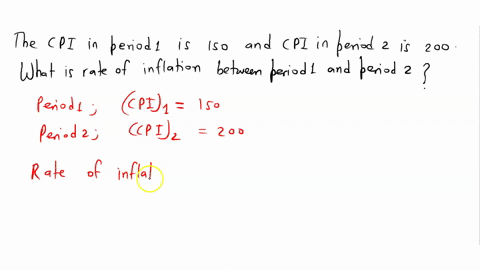 The CPI in period 1 is 150 and CPI in period 2 is 200.
What is rate of inflation between period 1 and period 2?
Period 1; (CPI)1 = 150
Period 2; (CPI)2 = 200
Rate of inflal